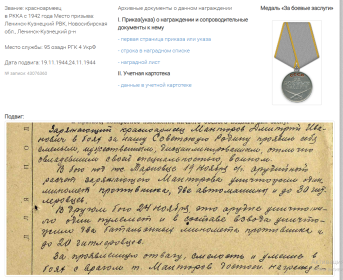 Звание: красноармеец
в РККА с 1942 года Место призыва:
Ленинск-Кузнецкий РВК, Новосибирская
обл., Ленинск-Кузнецкий р-н
Место службы: 85 оаздн РГК 4 УкрФ
Дата подвига: 19.11.1944,24.11.1944
№ записи:
Архивные документы о данном награждении:
I. Приказ(указ) о награждении и сопроводительные
документы к нему
- первая страница приказа или указа
- строка в наградном списке
- наградной лист
II. Учетная картотека
- данные в учетной картотеке
Медаль «За боевые заслуги»
Подвиг:
Заряжающий красноармеец Дмитрий Ива-
нович в боях за нашу Советскую Родину проявил себя
смелым, мужественным, дисциплинированным, отлично
овладевшим своей специальностью, воином.
В бою под 19 ноября орудийный
расчет заряжающего уничтожил один
миномет противника, две автомашины и до 30 гит-
леровцев.
В другом бою 24 ноября это орудие уничтожи-
ло один пулемет и в составе взвода уничто-
жило два миномета противника и
до 20 гитлеровцев.
За проявленную отвагу, смелость и умение в
боях с врагом т. достоин награжде-